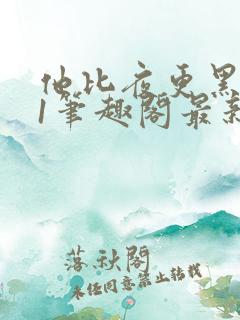 他比夜更黑
1笔趣阁最新
落秋阁
未经同意禁止转载